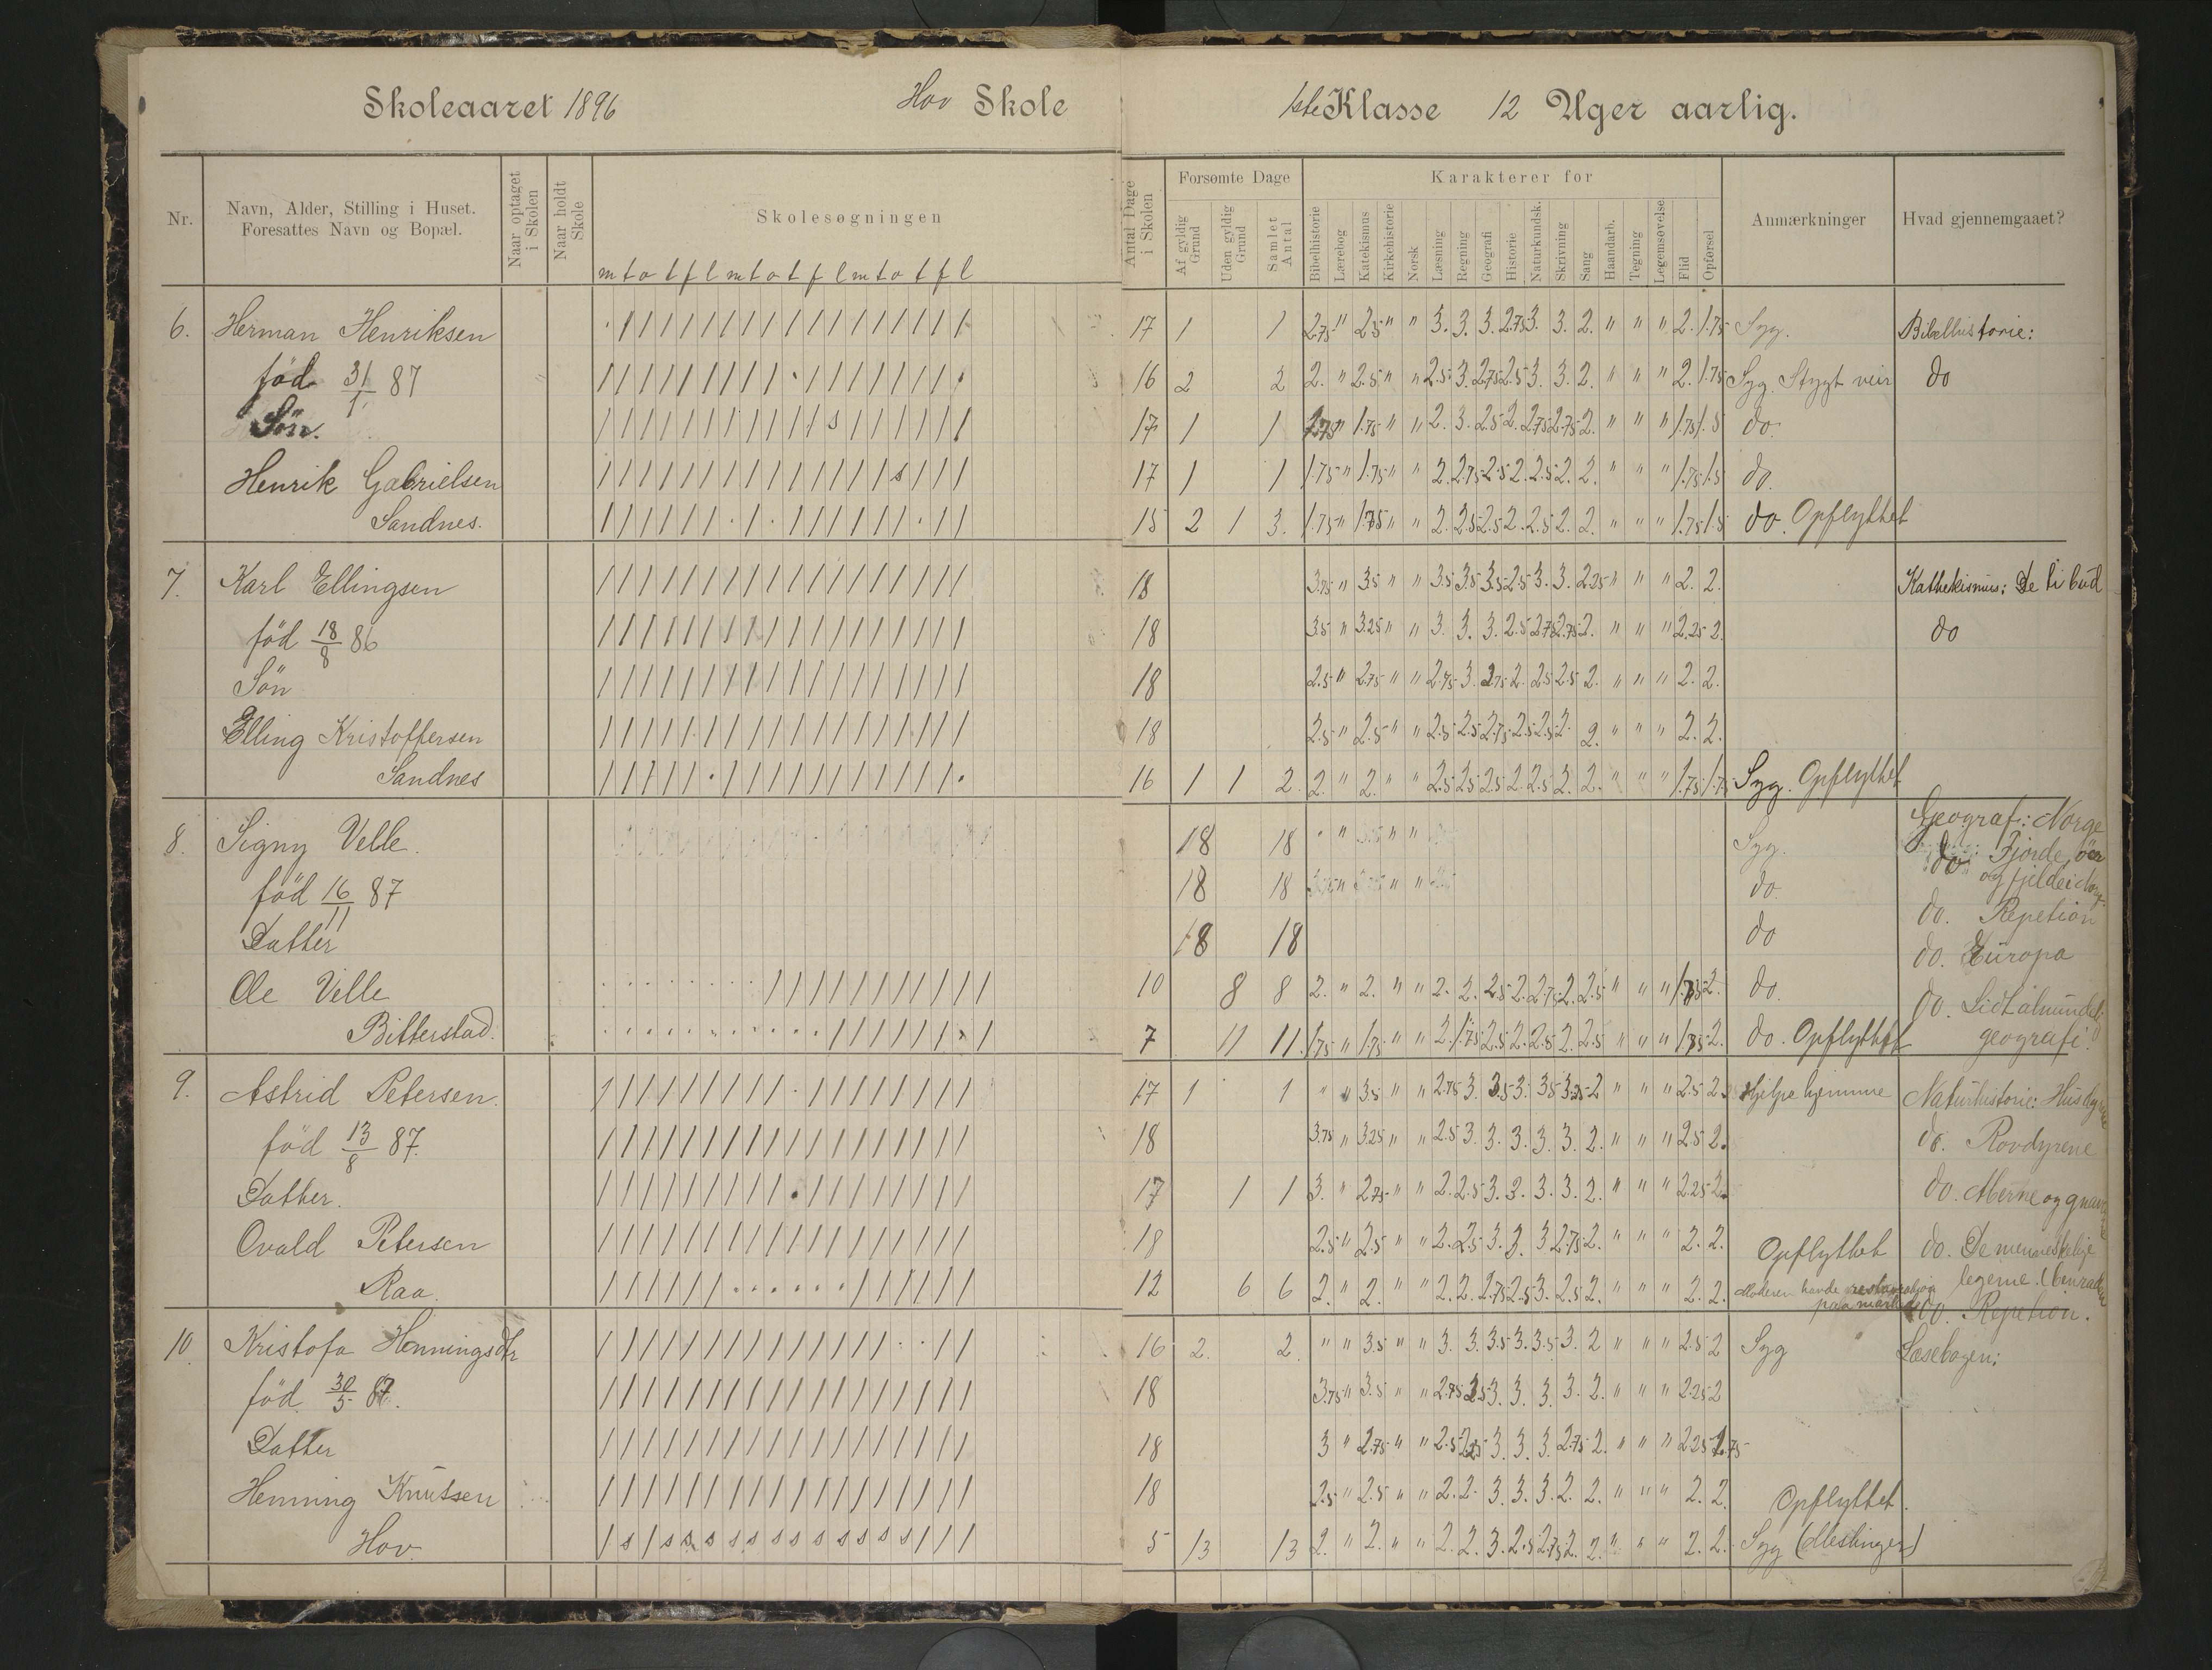 Skoleaaret 1896 Hov Skole 1ste Klasse 12 Uger aarlig.
Nr. Navn, Alder, Stilling i Huset. Foresattes Navn og Bopæl. Naar optaget i Skolen Naar holdt Skole Skolesøgningen Antal Dage i Skolen Forsømte Dage Karakterer for Anmærkninger Hvad gjennemgaaet?
Af gyldig Grund Uden gyldig Grund Samlet Antal Bibelhistorie Lærebog Katekismus Kirkehistorie Norsk Læsning Regning Geografi Historie Naturkundsk. Skrivning Sang Haandarb. Tegning Legemsøvelse Flid Opførsel
m t o t f l m t o t f l m t o t f l
6. Herman Henriksen 17 1 1 2.75 " 2.5 " " 3. 3. 3. 2.75 3. 3. 2. " " " 2. 1.75 Syg. Bibelhistorie:
föd 31/1 87 16 2 2 2. " 2.5 " " 2.5 3. 2.75 2.5 3. 3. 2. " " " 2. 1.75 Syg. Stygt veir do
Sön. 17 1 1 " 1.75 " " 2. 3. 2.5 2. 2.75 2.75 2. " " " 1.75 1.5 do.
Henrik Gabrielsen 17 1 1 1.75 " 1.75 " " 2. 2.75 2.5 2. 2.5 2. 2. " " " 1.75 1.5 do.
Sandnes. 15 2 1 3. 1.75 " 1.75 " " 2. 2.5 2.5 2. 2.5 2. 2. " " " 1.75 1.5 do. Opflyttet
7. Karl Ellingsen 18 3.75 " 3.5 " " 3.5 3.5 3.5 2.5 3. 3. 2.25 " " " 2. 2. Kathekismus: De ti bud
föd 18/8 86 18 3.5 " 3.25 " " 3. 3. 3. 2.5 2.75 2.75 2. " " " 2.25 2. do
Sön 18 2.5 " 2.75 " " 2.75 3. 2.75 2. 2.5 2.5 2. " " " 2. 2.
Elling Kristoffersen 18 2.5 " 2.5 " " 2.5 2.5 2.75 2.5 2.5 2. 2. " " " 2. 2.
Sandnes 16 1 1 2. 2. " 2. " " 2.5 2.5 2.5 2. 2.5 2. 2. " " " 1.75 1.75 Syg. Opflyttet
8. Signy Velle. 18 18 " " " Syg. Geograf.: Norge
föd 16/11 87 18 18 " " " do. do. Fjorde, öer og fjelde i Norg.
Datter 18 18 do do. Repetion
Ole Velle 10 8 8 2. " 2. " " 2. 2. 2.5 2. 2.75 2. 2.5 " " " 1.75 2. do. do. Europa
Bitterstad. 7 11 11. 1.75 " 1.75 " " 2. 1.75 2.5 2. 2.5 2. 2.5 " " " 1.75 2. do. Opflyttet do. Lidt almindeli geografi.
9. Astrid Petersen. 17 1 1 " " 3.5 " " 2.75 3. 3.5 3. 3.5 3.25 2 " " " 2.5 2. Hjelpe hjemme Naturhistorie: Husdyrene
föd 13/8 87. 18 3.75 " 3.25 " " 2.5 3. 3. 3. 3. 3. 2. " " " 2.5 2. do. Rovdyrene
Datter. 17 1 1 3. " 2.75 " " 2. 2.5 3. 3. 3. 3. 2. " " " 2.25 2. do. Aberne og gnavere
Ovald Petersen 18 2.5 " 2.5 " " 2. 2.5 3. 3. 3 2.75 2. " " " 2. 2. Opflyttet do. De menneskelige legeme.
Raa. 12 6 6 2. " 2. " " 2. 2. 2.75 2.5 3. 2.5 2. " " " 2. 2. Moderen havde paa do. Repetion.
10. Kristofa Henningsdtr 16 2. 2. " " 3.5 " " 3. 3. 3.5 3. 3.5 3. 2 " " " 2.5 2 Syg Læsebogen:
föd 30/5 87. 18 3.75 " 3.5 " " 2.75 2.5 3. 3. 3. 3. 2. " " " 2.25 2
Datter 18 3 " 2.75 " " 2.5 2.25 3. 3. 3. 2.75 2. " " " 2.25 1.75
Henning Knutsen 18 2.5 " 2.5 " " 2. 2. 3. 3. 3. 2. 2. " " " 2. 2. Opflyttet.
Hov. 5 13 13 2. " 2. " " 2. 2. 3. 2.5 2.75 2. 2. " " " 2. 2. Syg (Meslinger)